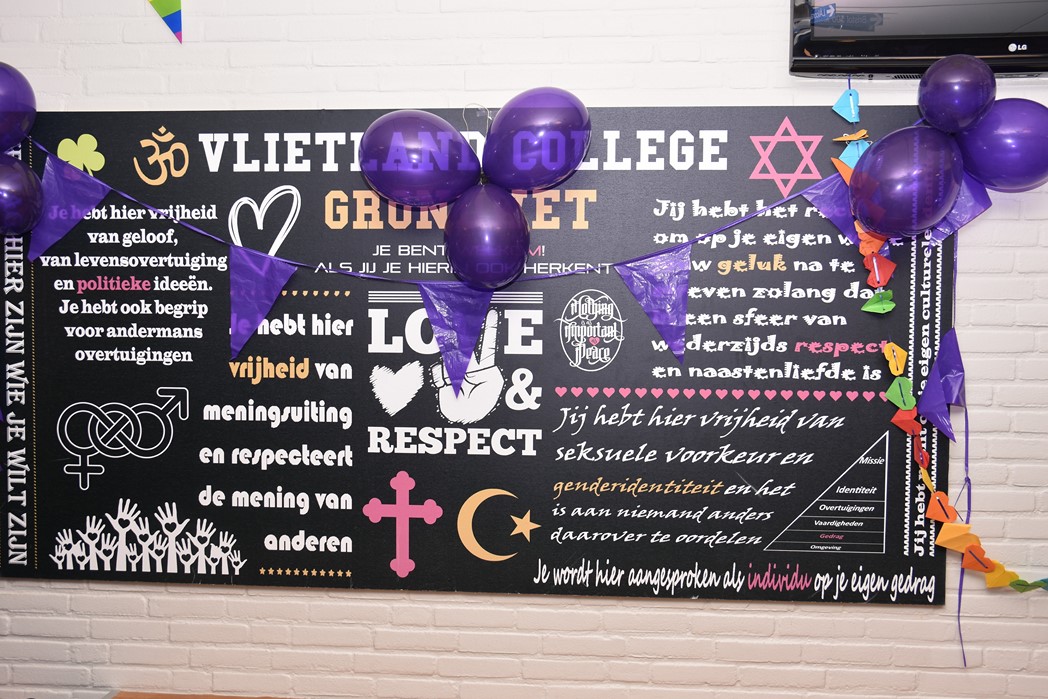 LG
VLIETLAND COLLEGE
JE BENT
ALS JIJ JE HIERIN OOK HERKENT
HIER ZIJN WIE JE WILT ZIJN
Je hebt hier vrijheid
van geloof,
van levensovertuiging
en politieke ideeën.
Je hebt ook begrip
voor andermans
overtuigingen
Je hebt hier
vrijheid van
meningsuiting
en respecteert
de mening van
anderen
LOVE
&
RESPECT
Nothing
Important
Peace
Jij hebt het
om op je eigen
geluk na te
even zolang
een sfeer van
wederzijds respect
en naastenliefde is
Jij hebt hier vrijheid van
seksuele voorkeur en
genderidentiteit en het
is aan niemand anders
daarover te oordelen
Missie
Identiteit
Overtuigingen
Vaardigheden
Gedrag
Omgeving
Je wordt hier aangesproken als individu op je eigen gedrag
Jij hebt je eigen culturele